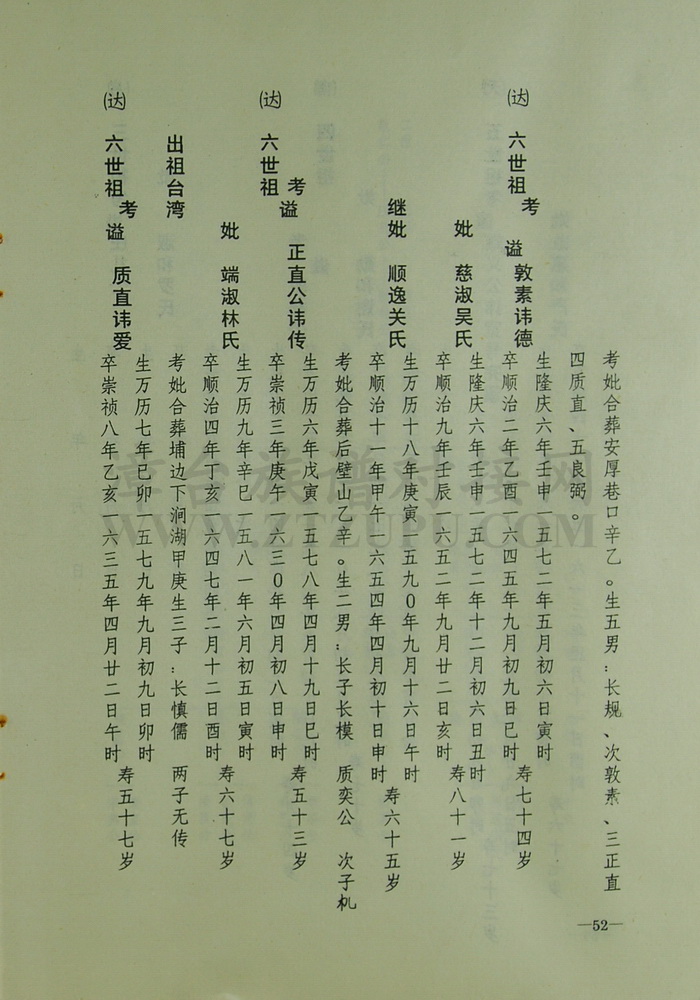 考妣合葬安厚巷口辛乙。生五男：长规、次敦素、三正直
四质直、五良弼。
(达) 六世祖考 谥敦素讳德
生隆庆六年壬申一五七二年五月初六日寅时
卒顺治二年乙酉一六四五年九月初九日巳时 寿七十四岁
妣 慈淑吴氏
生隆庆六年壬申一五七二年十二月初六日丑时
卒顺治九年壬辰一六五二年九月廿二日亥时 寿八十一岁
继妣 顺逸关氏
生万历十八年庚寅一五九0年九月十六日午时
卒顺治十一年甲午一六五四年四月初十日申时 寿六十五岁
考妣合葬后壁山乙辛。生二男：长子长模 质奕公 次子机
(达) 六世祖考谥 正直公讳传
生万历六年戊寅一五七八年四月十九日巳时
卒崇祯三年庚午一六三0年四月初八日申时 寿五十三岁
妣 端淑林氏
生万历九年辛巳一五八一年六月初五日寅时
卒顺治四年丁亥一六四七年二月十二日酉时 寿六十七岁
出祖台湾
考妣合葬埔边下涧湖甲庚生三子：长慎儒 两子无传
(达) 六世祖考谥 质直讳爱
生万历七年已卯一五七九年九月初九日卯时
卒崇祯八年乙亥一六三五年四月廿二日午时 寿五十七岁
—52—
WWW.ZTZUPU.COM